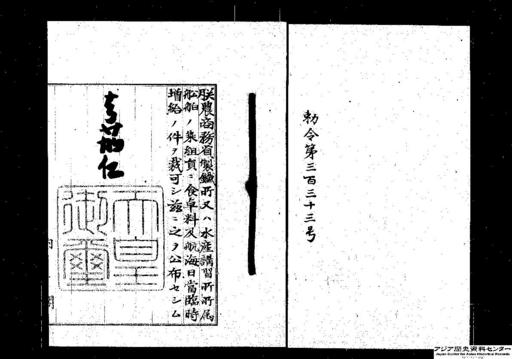 勅令第三百三十三号
朕農商務省製鐵所又ハ水産講習所所属
船舶ノ乗組員ニ食卓料及航海日當臨時
増給ノ件ヲ裁可シ茲ニ之ヲ公布セシム
嘉仁
天皇
御璽
アジア歴史資料センター
Japan Center for Asian Historical Records